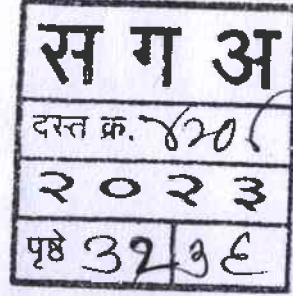 स ग अ
दस्त क्र. ४२०८
२ ० २ ३
पृष्ठे 32/3६